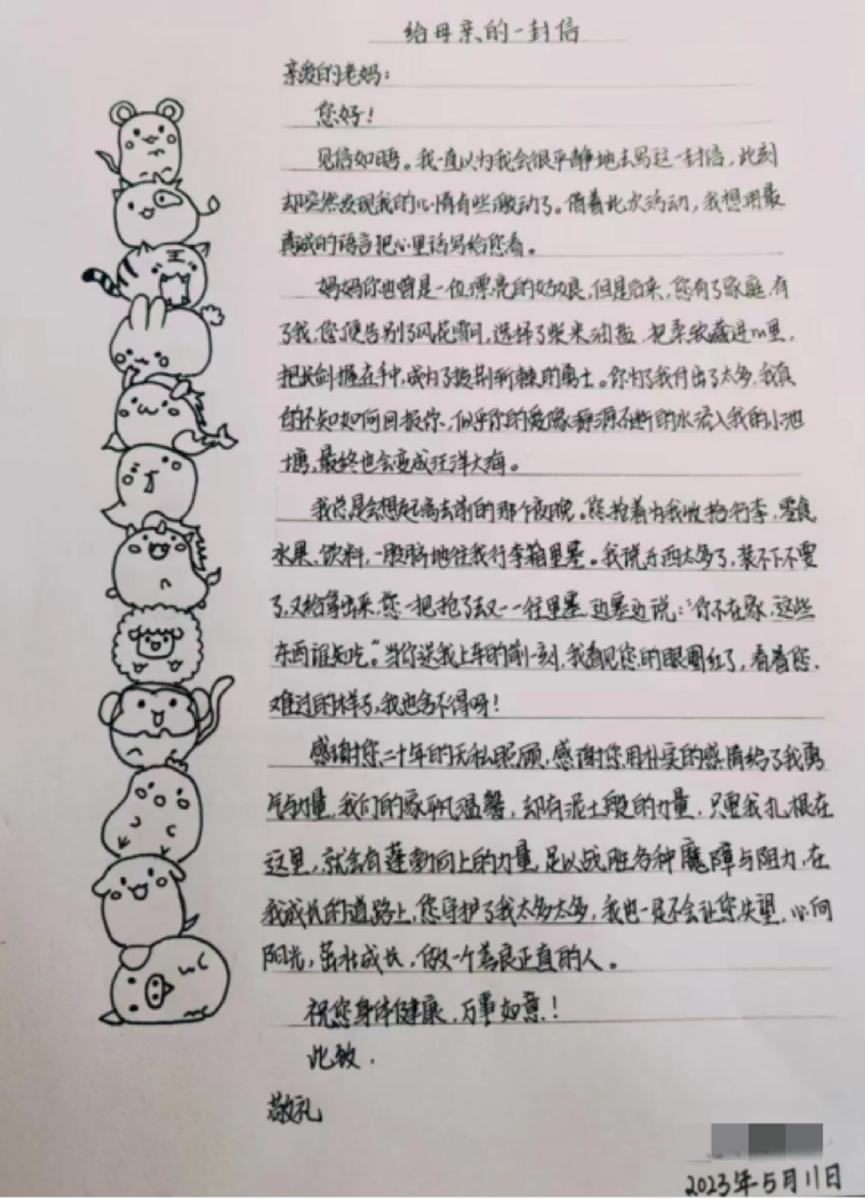 给母亲的一封信
亲爱的老妈：
您好！
见信如晤。我一直以为我会很平静地去写这一封信，此刻
却突然发现我的心情有些激动了。借着此次活动，我想用最
真诚的语言把心里话写给您看。
妈妈你也曾是一位漂亮的姑娘，但是后来，您有了家庭，有
了我，您便告别了风花雪月，选择了柴米油盐，把柔软藏进心里，
把长剑握在手中，成为了披荆斩棘的勇士。你为了我付出了太多，我真
的不知如何回报你，似乎你的爱像源源不断的水流入我的小池
塘，最终也会变成汪洋大海。
我总是会想起离去前的那个夜晚。您抢着为我收拾行李，零食
水果、饮料，一股脑地往我行李箱里塞。我说东西太多了，装不下不要
了，又给拿出来，您一把抢了去又一一往里塞，边塞边说：“你不在家，这些
东西谁知吃。”当你送我上车的前一刻，我看见您的眼圈红了，看着您，
难过的样子，我也舍不得呀！
感谢您二十年的无私照顾，感谢您用朴实的感情给了我勇
气与力量，我们的家平凡温馨，却有泥土般的力量，只要我扎根在
这里，就会有蓬勃向上的力量，足以战胜各种魔障与阻力，在
我成长的道路上，您守护了我太多太多，我也一定不会让您失望，心向
阳光，茁壮成长，做一个善良正直的人。
祝您身体健康，万事如意！
此致，
敬礼
2023年5月11日